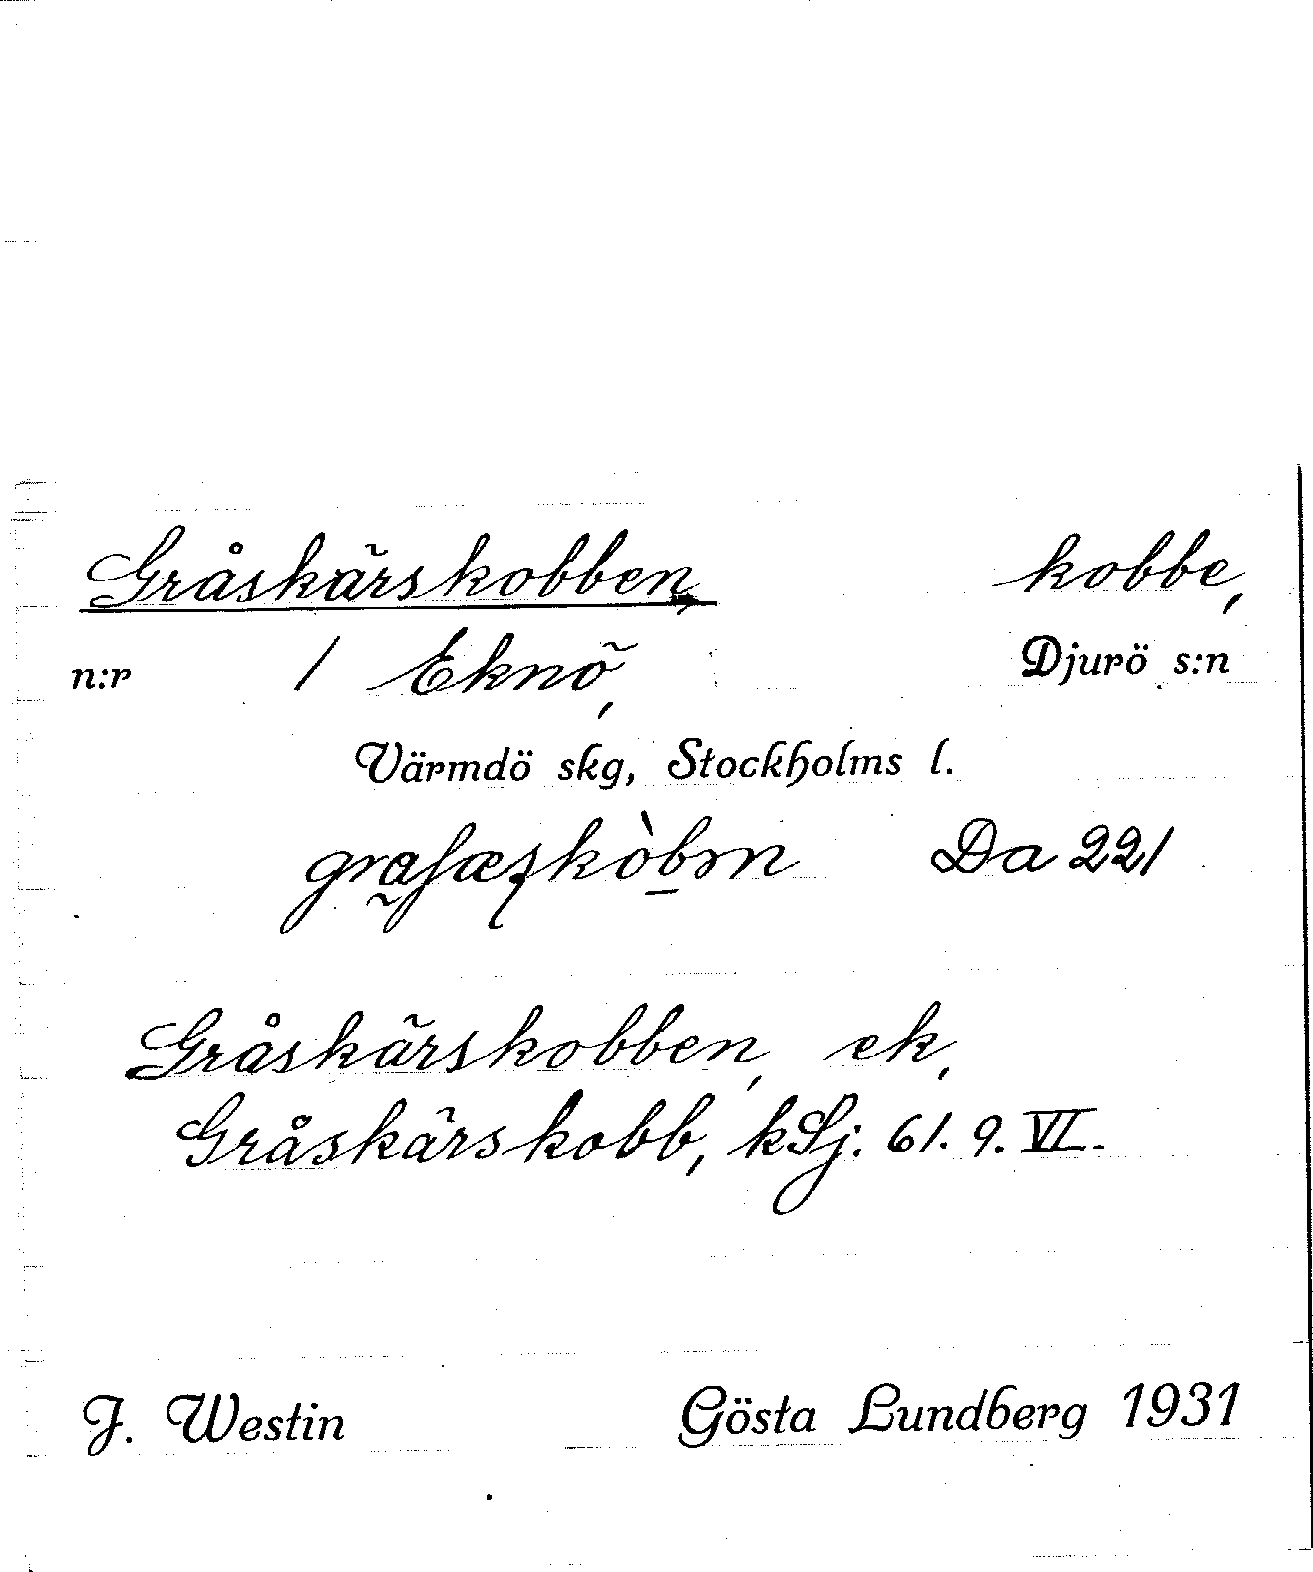 Gråskärskobben, kobbe,
n:r 1 Eknö, Djurö s:n
Värmdö skg, Stockholms l.
Da 221
Gråskärskobben, ek,
Gråskärskobb, kSj. 61. 9. VI.
J. Westin Gösta Lundberg 1931